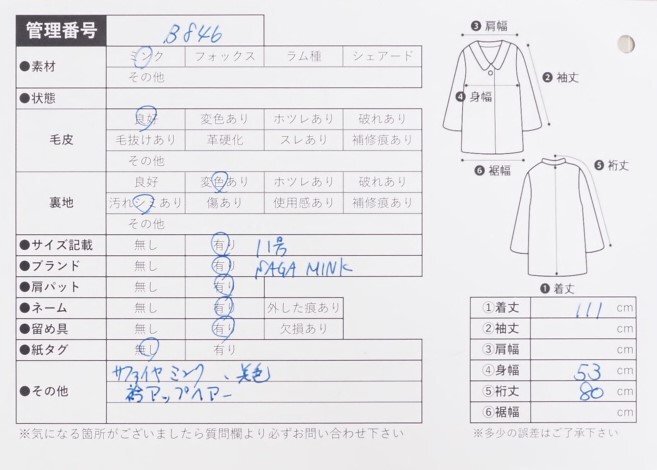 管理番号 B846
●素材 ミンク フォックス ラム種 シェアード
その他
●状態
毛皮 良好 変色あり ホツレあり 破れあり
毛抜けあり 革硬化 スレあり 補修痕あり
その他
裏地 良好 変色あり ホツレあり 破れあり
汚れシミあり 傷あり 使用感あり 補修痕あり
その他
●サイズ記載 無し 有り 11号
●ブランド 無し 有り SAGA MINK
●肩パット 無し 有り
●ネーム 無し 有り 外した痕あり
●留め具 無し 有り 欠損あり
●紙タグ 無し 有り
●その他 サファイヤミンク、美色
衿アップヘアー
※気になる箇所がございましたら質問欄より必ずお問い合わせ下さい
❸肩幅
❷袖丈
❹身幅
❻裾幅
❺裄丈
❶着丈
①着丈 111 cm
②袖丈 cm
③肩幅 cm
④身幅 53 cm
⑤裄丈 80 cm
⑥裾幅 cm
※多少の誤差はご了承下さい